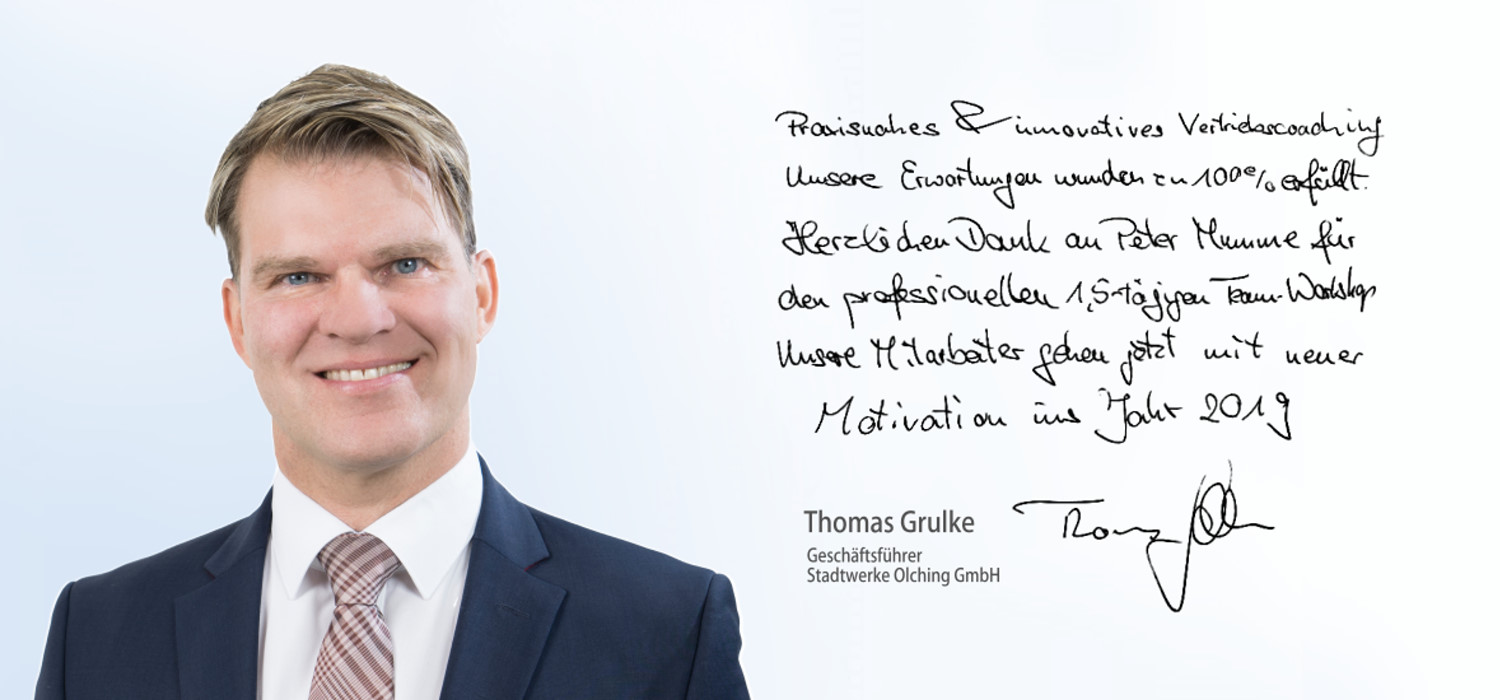 Praxisnahes & innovatives Vertriebscoaching
Unsere Erwartungen wurden zu 100% erfüllt.
Herzlichen Dank an Peter Mumme für
den professionellen 1,5-tägigen Team-Workshop
Unsere Mitarbeiter gehen jetzt mit neuer
Motivation ins Jahr 2019
Thomas Grulke
Geschäftsführer
Stadtwerke Olching GmbH